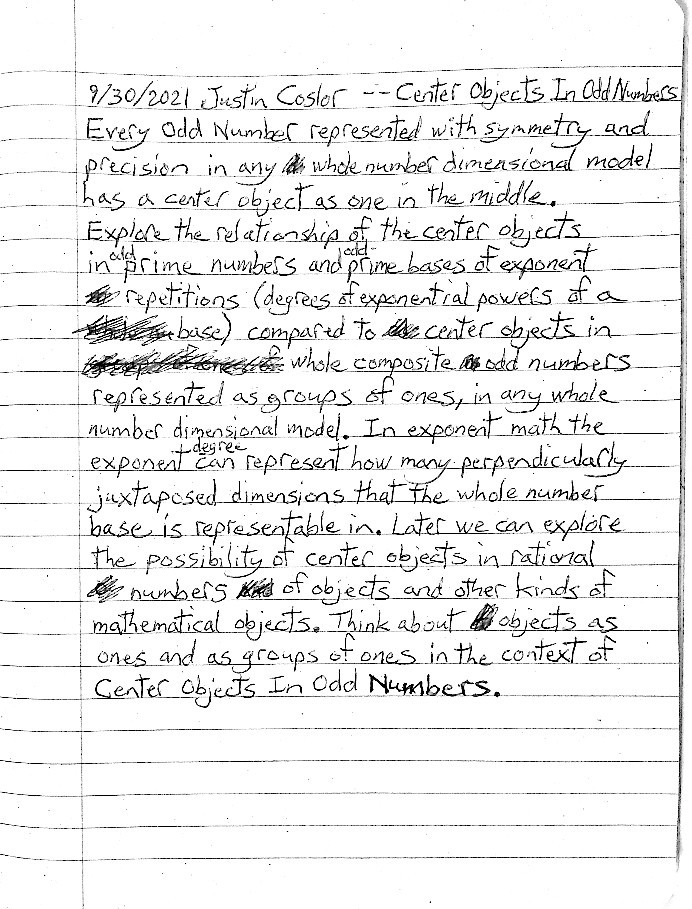 9/30/2021 Justin Coslor -- Center Objects In Odd Numbers
Every Odd Number represented with symmetry and
precision in any whole number dimensional model
has a center object as one in the middle.
Explore the relationship of the center objects
in odd prime numbers and odd-prime bases of exponent
repetitions (degrees of exponential powers of a
base) compared to center objects in
whole composite odd numbers
represented as groups of ones, in any whole
number dimensional model. In exponent math the
exponent degree can represent how many perpendicularly
juxtaposed dimensions that the whole number
base is representable in. Later we can explore
the possibility of center objects in rational
numbers of objects and other kinds of
mathematical objects. Think about objects as
ones and as groups of ones in the context of
Center Objects In Odd Numbers.